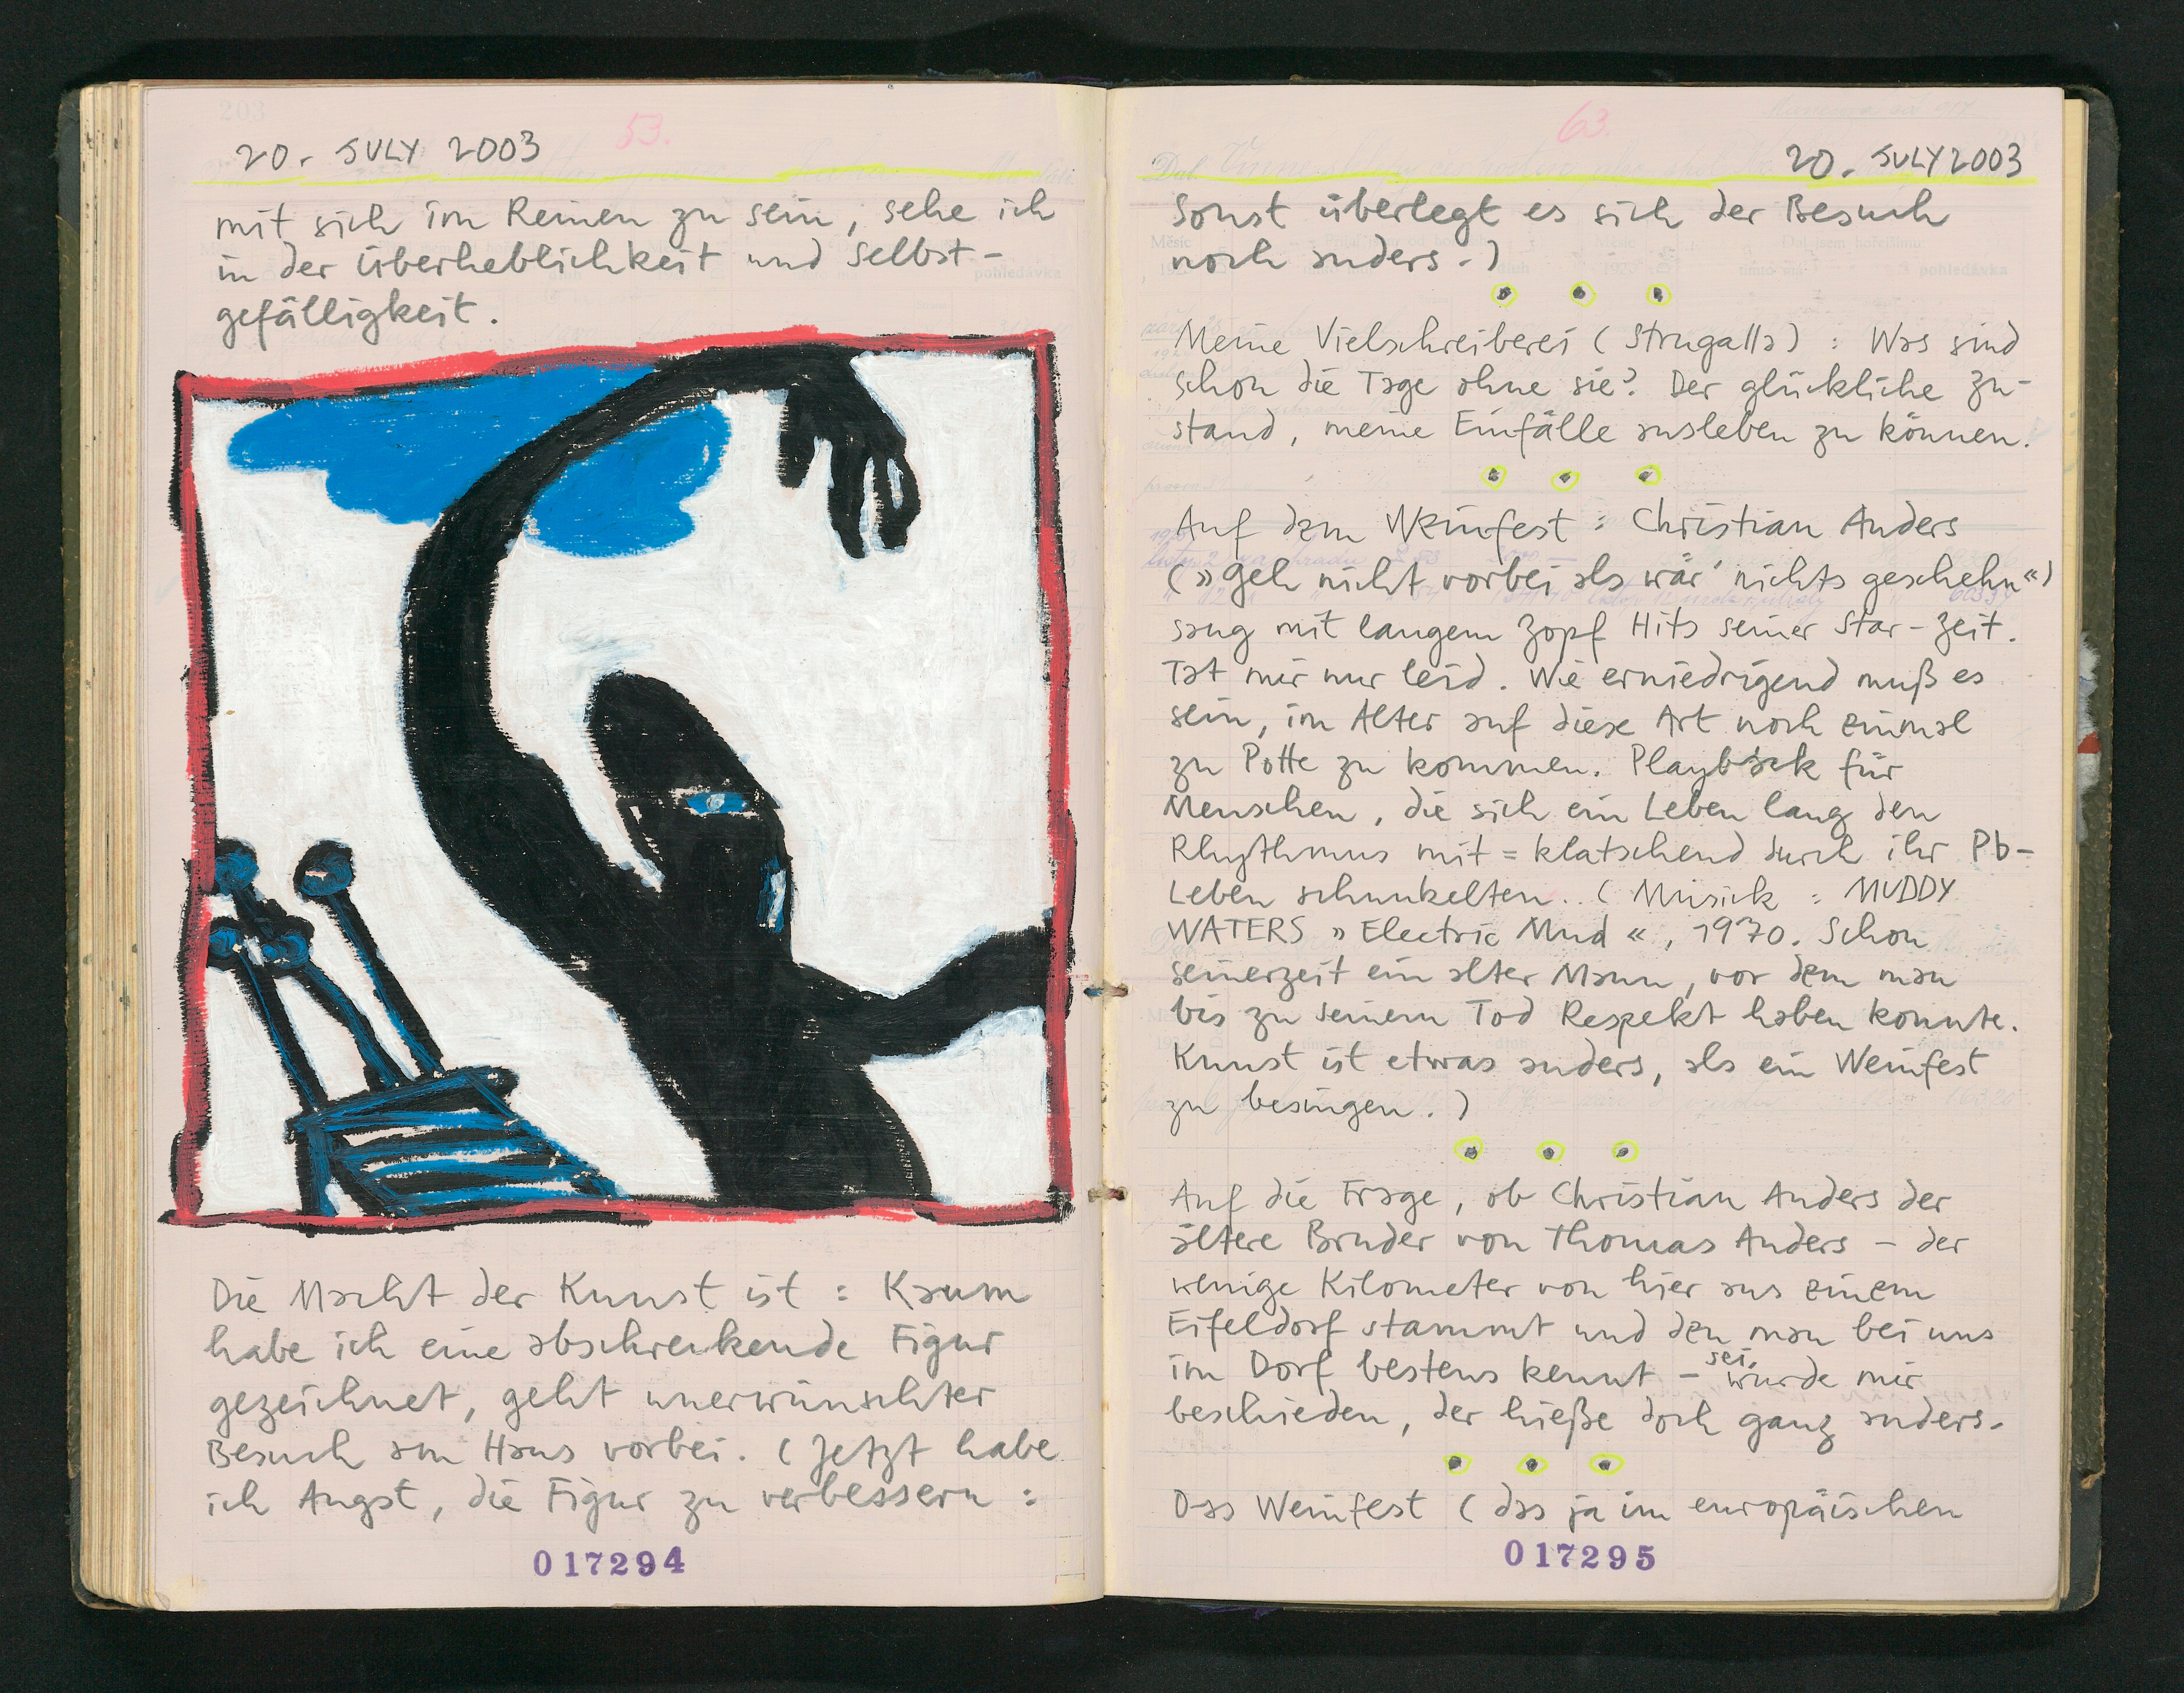 203
53.
20. JULY 2003
mit sich im Reinen zu sein, sehe ich
in der Überheblichkeit und Selbst-
gefälligkeit.
Die Macht der Kunst ist : Kaum
habe ich eine abschreckende Figur
gezeichnet, geht unerwünschter
Besuch am Haus vorbei. (Jetzt habe
ich Angst, die Figur zu verbessern :
017294
63.
20. JULY 2003
Sonst überlegt es sich der Besuch
noch anders.)
Meine Vielschreiberei (Strugalla) : Was sind
schon die Tage ohne sie? Der glückliche Zu-
stand, meine Einfälle ausleben zu können.
Auf dem Weinfest : Christian Anders
(»Geh nicht vorbei als wär' nichts geschehn«)
sang mit langem Zopf Hits seiner Star-Zeit.
Tat mir nur leid. Wie erniedrigend muß es
sein, im Alter auf diese Art noch einmal
zu Potte zu kommen. Playback für
Menschen, die sich ein Leben lang den
Rhythmus mit=klatschend durch ihr Pb-
Leben schunkelten. (Musick : MUDDY
WATERS »Electric Mud«, 1970. Schon
seinerzeit ein alter Mann, vor dem man
bis zu seinem Tod Respekt haben konnte.
Kunst ist etwas anders, als ein Weinfest
zu besingen.)
Auf die Frage, ob Christian Anders der
ältere Bruder von Thomas Anders – der
wenige Kilometer von hier aus einem
Eifeldorf stammt und den man bei uns
im Dorf bestens kennt – sei, wurde mir
beschieden, der hieße doch ganz anders.
Das Weinfest (das ja im europäischen
017295